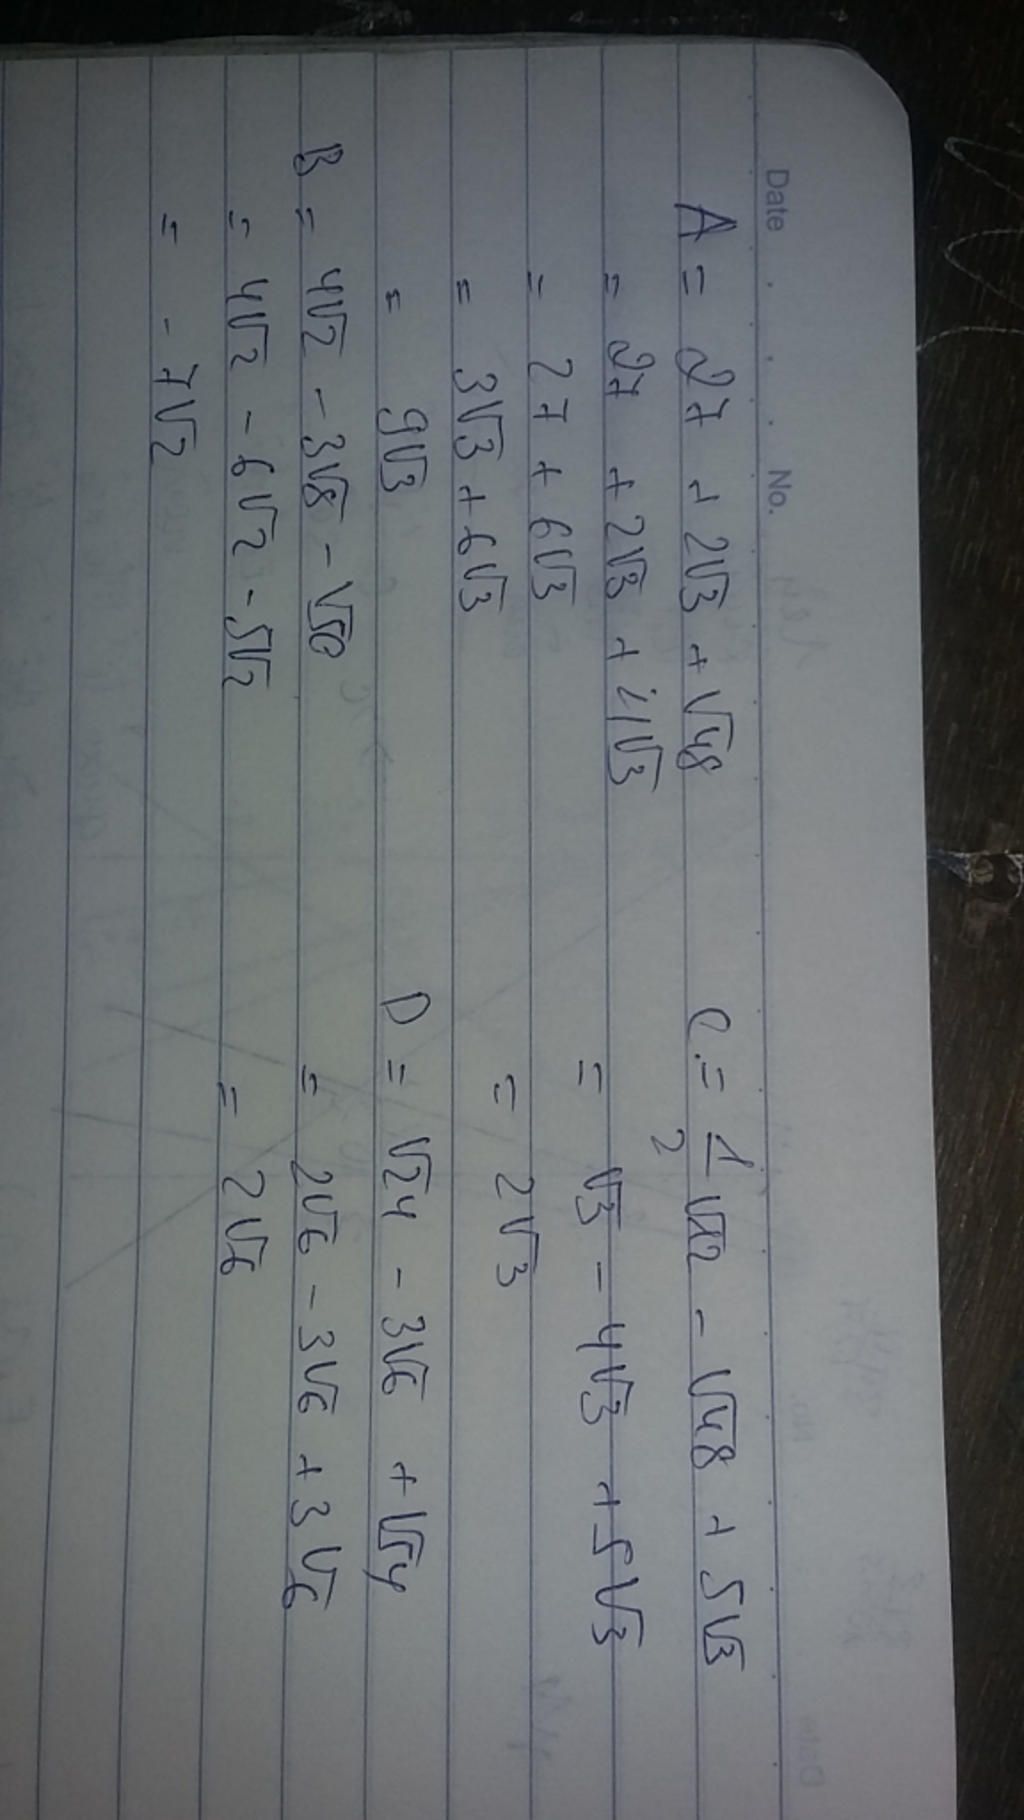 Date . . . . No.
A = 27 + 2√3 + √48
= 27 + 2√3 + 4√3
= 27 + 6√3
= 3√3 + 6√3
= 9√3
B = 4√2 - 3√8 - √50
= 4√2 - 6√2 - 5√2
= - 7√2
C = 1/2 √12 - √48 + 5√3
= √3 - 4√3 + 5√3
= 2√3
D = √24 - 3√6 + √54
= 2√6 - 3√6 + 3√6
= 2√6